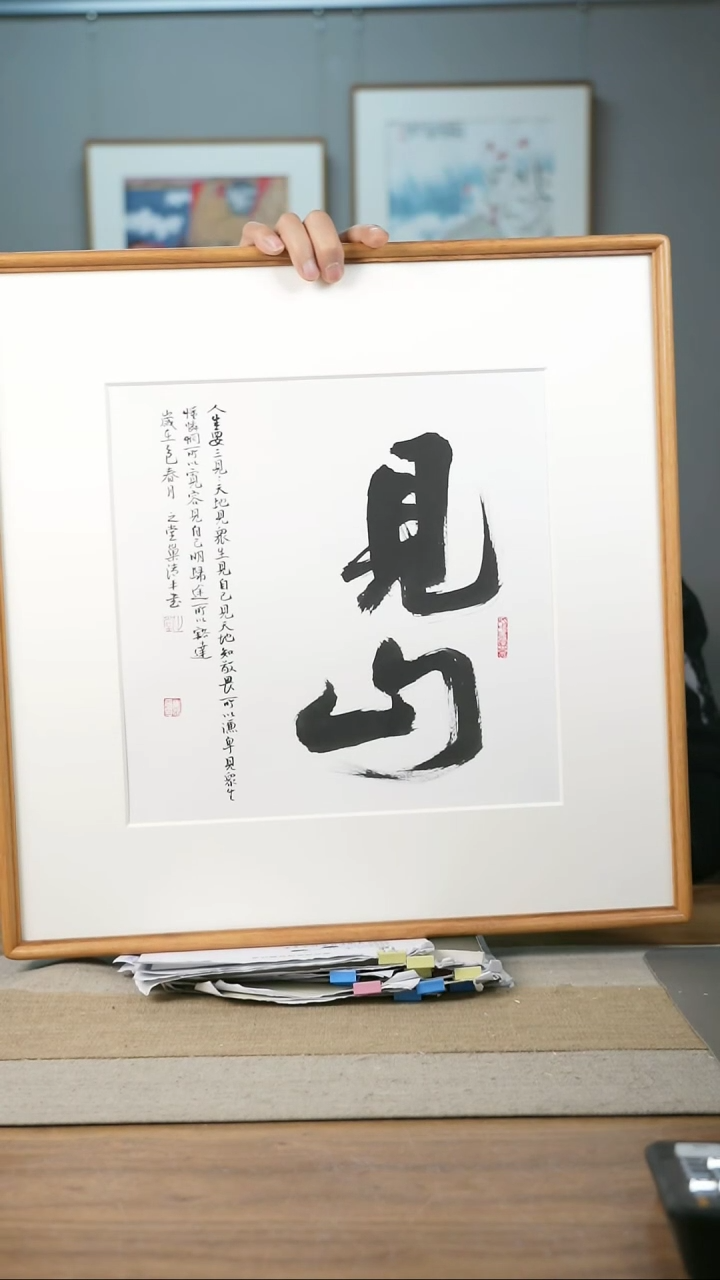 見山
人生要三見天地見眾生見自己見天地知敬畏可以謙卑見眾生
憐憫可以寬容見自己明歸途可以豁達
歲在乙巳春月 之堂 清丰書